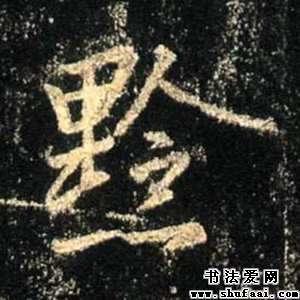 黔
书法爱网
www.shufaai.com